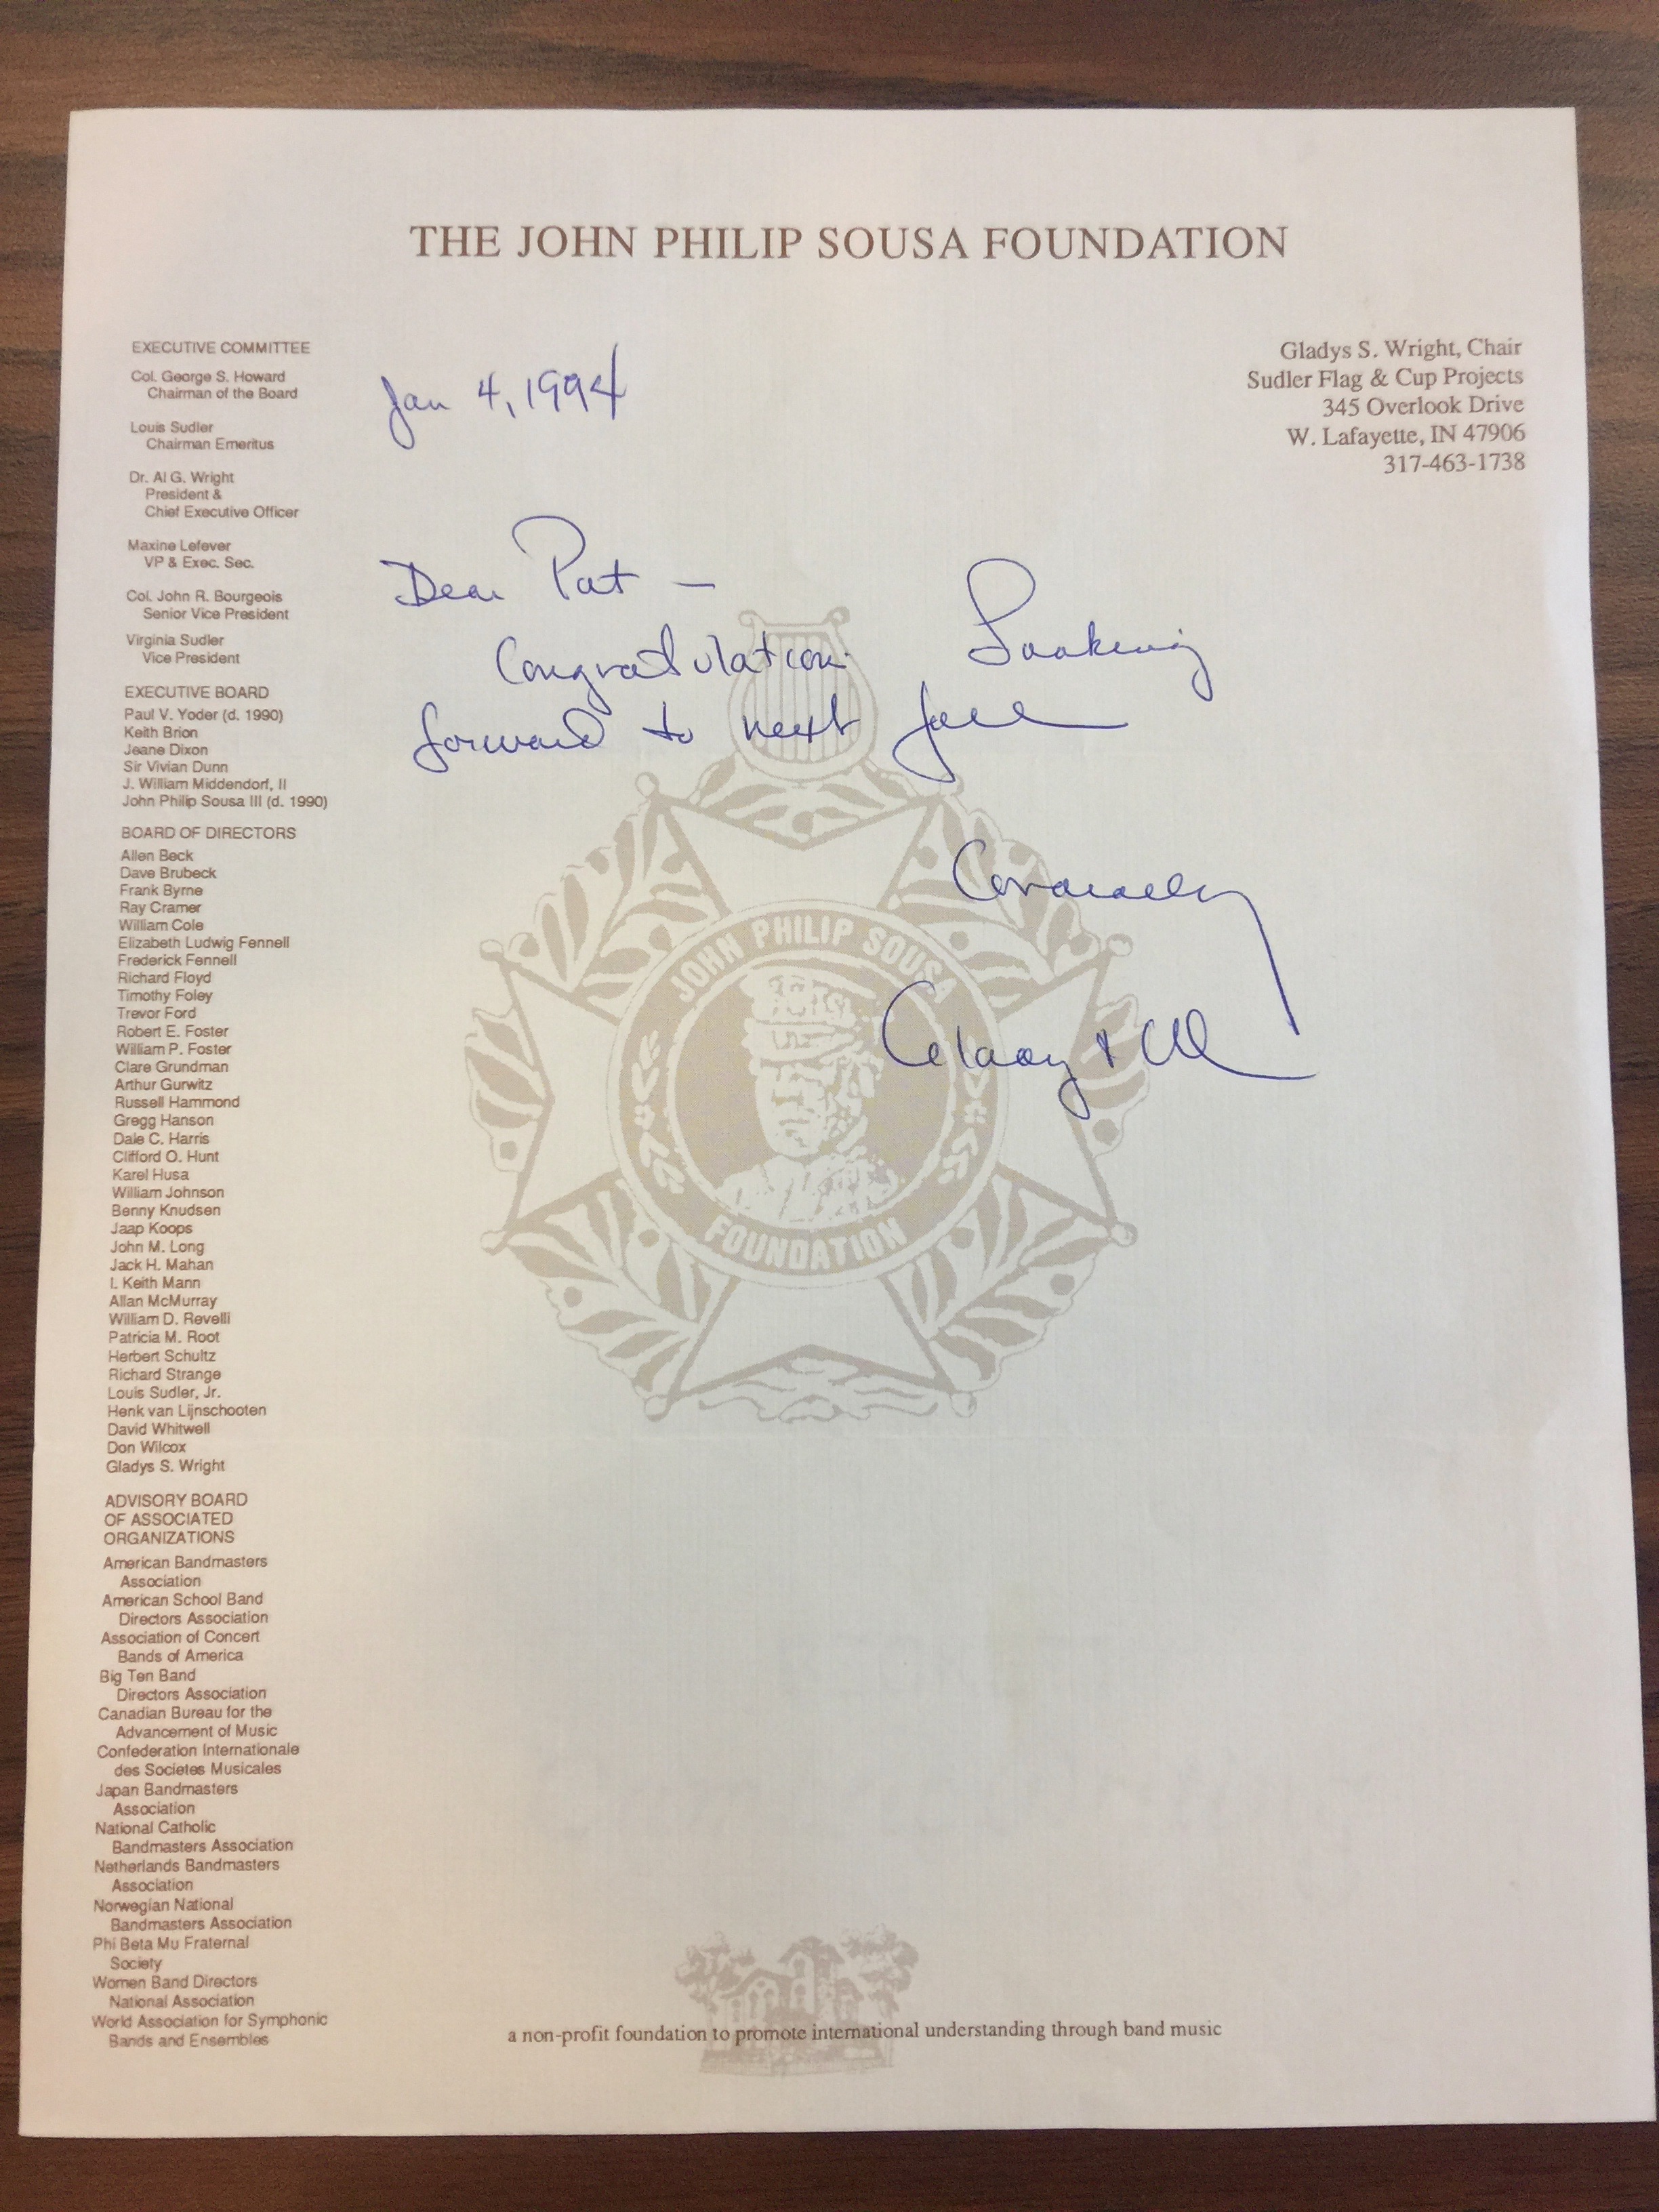 THE JOHN PHILIP SOUSA FOUNDATION
Gladys S. Wright, Chair
Sudler Flag & Cup Projects
345 Overlook Drive
W. Lafayette, IN 47906
317-463-1738
EXECUTIVE COMMITTEE
Col. George S. Howard
Chairman of the Board
Louis Sudler
Chairman Emeritus
Dr. Al G. Wright
President &
Chief Executive Officer
Maxine Lefever
VP & Exec. Sec.
Col. John R. Bourgeois
Senior Vice President
Virginia Sudler
Vice President
EXECUTIVE BOARD
Paul V. Yoder (d. 1990)
Keith Brion
Jeane Dixon
Sir Vivian Dunn
J. William Middendorf, II
John Philip Sousa III (d. 1990)
BOARD OF DIRECTORS
Allen Beck
Dave Brubeck
Frank Byrne
Ray Cramer
William Cole
Elizabeth Ludwig Fennell
Frederick Fennell
Richard Floyd
Timothy Foley
Trevor Ford
Robert E. Foster
William P. Foster
Clare Grundman
Arthur Gurwitz
Russell Hammond
Gregg Hanson
Dale C. Harris
Clifford O. Hunt
Karel Husa
William Johnson
Benny Knudsen
Jaap Koops
John M. Long
Jack H. Mahan
I. Keith Mann
Allan McMurray
William D. Revelli
Patricia M. Root
Herbert Schultz
Richard Strange
Louis Sudler, Jr.
Henk van Lijnschooten
David Whitwell
Don Wilcox
Gladys S. Wright
ADVISORY BOARD
OF ASSOCIATED
ORGANIZATIONS
American Bandmasters
Association
American School Band
Directors Association
Association of Concert
Bands of America
Big Ten Band
Directors Association
Canadian Bureau for the
Advancement of Music
Confederation Internationale
des Societes Musicales
Japan Bandmasters
Association
National Catholic
Bandmasters Association
Netherlands Bandmasters
Association
Norwegian National
Bandmasters Association
Phi Beta Mu Fraternal
Society
Women Band Directors
National Association
World Association for Symphonic
Bands and Ensembles
Jan 4, 1994
Dear Pat –
Congratulations Looking
forward to next
Cordially
Gladys & Al
JOHN PHILIP SOUSA
FOUNDATION
a non-profit foundation to promote international understanding through band music